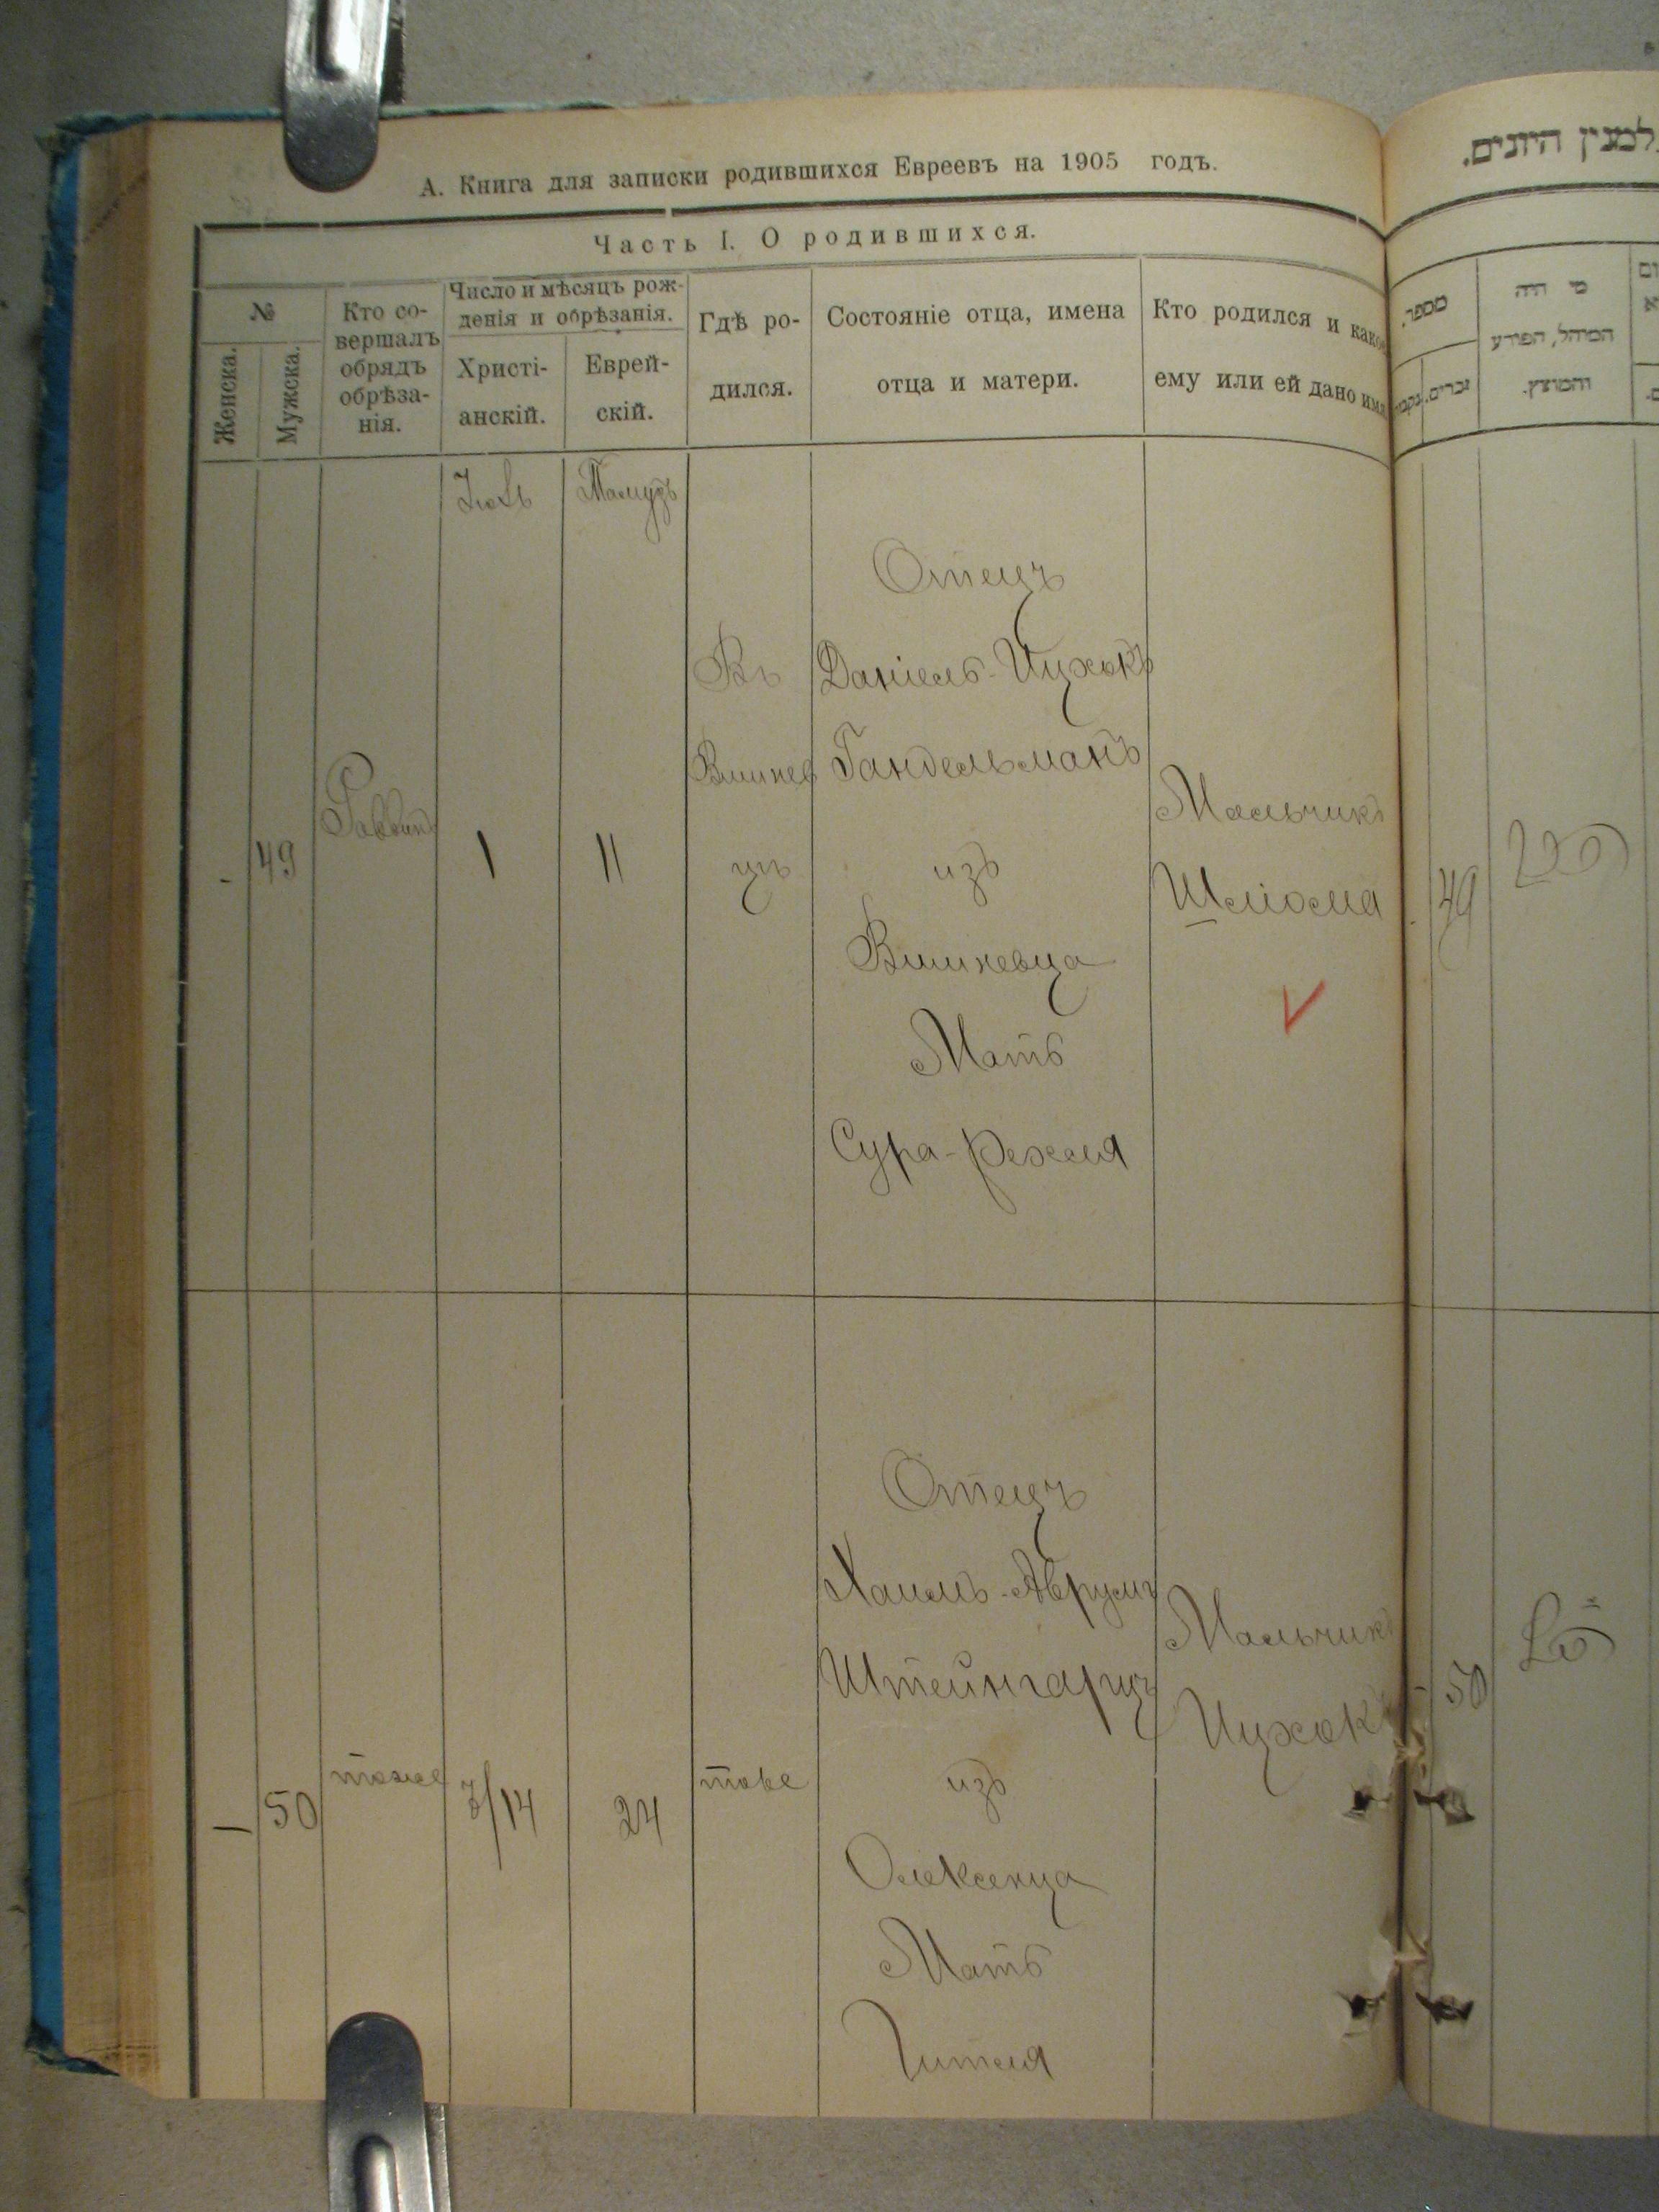 А. Книга для записки родившихся Евреевъ на 1905 годъ.
Часть I. О родившихся.
№
Женска.
Мужска.
Кто со-
вершалъ
обрядъ
обрѣза-
нія.
Число и мѣсяцъ рож-
денія и обрѣзанія.
Христі-
анскій.
Еврей-
скій.
Гдѣ ро-
дился.
Состояніе отца, имена
отца и матери.
Кто родился и како
ему или ей дано имя
Іюль
Тамузъ
-
49
Раввинъ
1
11
Въ
Вишнев
цѣ
Отецъ
Даніель-Ицхокъ
Гандельманъ
изъ
Вишневца
Мать
Сура-Рехля
Мальчикъ
Шліома
—
50
тоже
7/14
24
тоже
Отецъ
Хаимъ-Аврумъ
Штейнгарцъ
изъ
Олексенца
Мать
Гителя
Мальчикъ
Ицхокъ
למנין היונים.
מספר.
זכרים.
מי היה
המוהל, הפורע
והמוצץ.
49
50